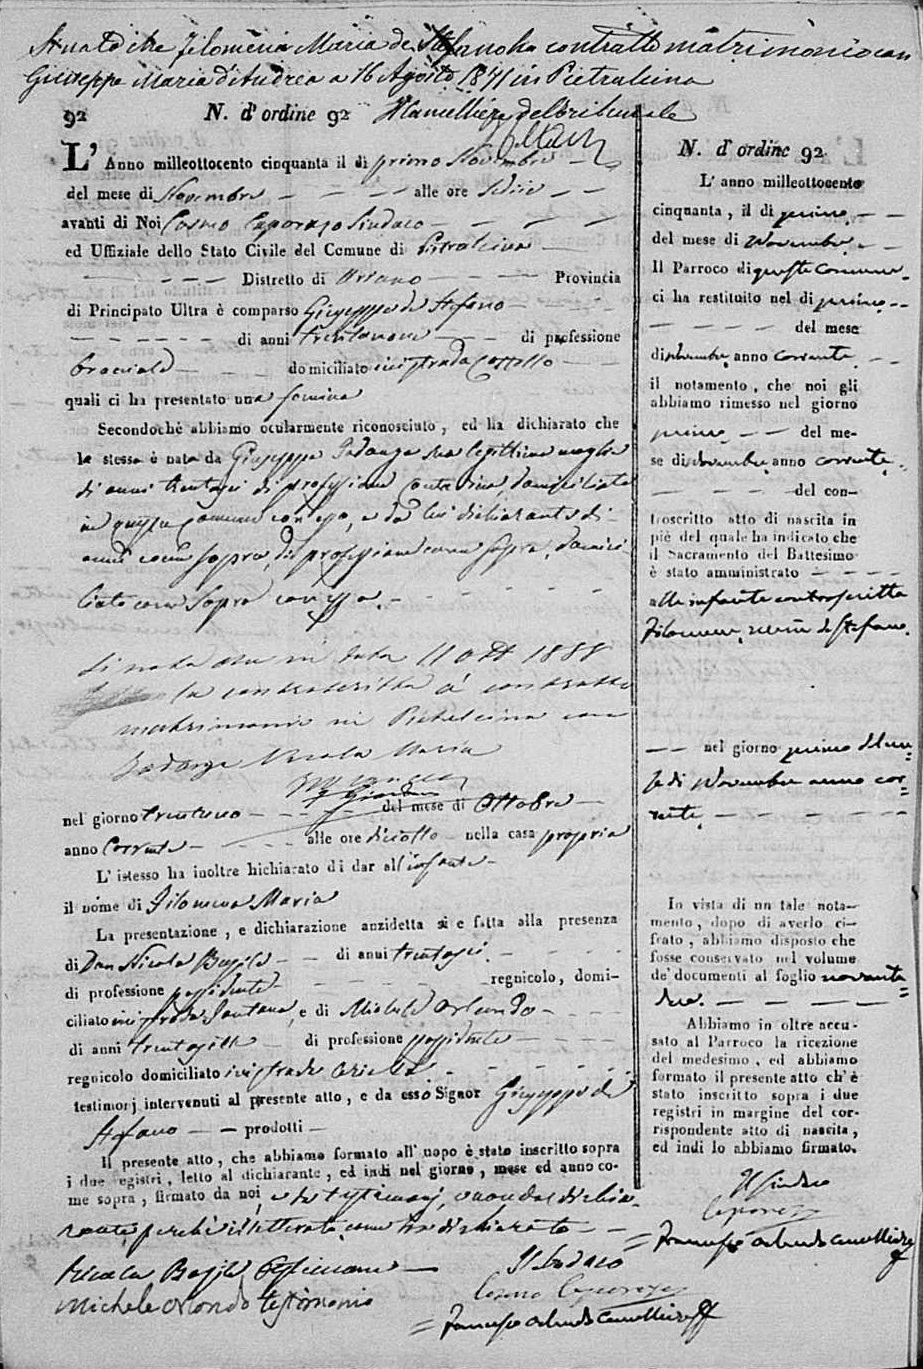 Filomena Maria de Stefano ha contratto matrimonio con
Giuseppe Maria d'Andrea a 16 Agosto 1871 in Pietralcina
92 N. d'ordine 92 Il Cancelliere del Tribunale
L' Anno milleottocento cinquanta il di primo Novembre
del mese di Novembre alle ore
avanti di Noi Cosmo Caporaso Sindaco
ed Uffiziale dello Stato Civile del Comune di Pietralcina
Distretto di Ariano Provincia
di Principato Ultra è comparso Giuseppe de Stefano
di anni trentanove di professione
bracciale domiciliato ivi strada Castello
quali ci ha presentato una femina
Secondochè abbiamo ocularmente riconosciuto, ed ha dichiarato che
la stessa è nata da Giuseppa Iadanza sua legittima moglie
di anni trentasei di professione contadina, domiciliata
in questo comune con esso, e da lui dichiarante di
anni come sopra, di professione come sopra, domici
liato come sopra con essa.
Si nota che in data 11 Ott 1888
la controscritta à contratto
matrimonio in Pietrelcina con
Iadanza Nicola Maria
nel giorno trentuno del mese di Ottobre
anno Corrente alle ore diciotto nella casa propria
L' istesso ha inoltre hichiarato di dar all' infante
il nome di Filomena Maria
La presentazione, e dichiarazione anzidetta si e fatta alla presenza
di Don Nicola Basile di anni trentasei
di professione possidente regnicolo, domi-
ciliato ivi strada Fontana, e di Michele Orlando
di anni trentasette di professione possidente
regnicolo domiciliato ivi strada
testimorj intervenuti al presente atto, e da esso Signor Giuseppe di
Stefano prodotti —
Il presente atto, che abbiamo formato all' uopo è stato inscritto sopra
i due registri, letto al dichiarante, ed indi nel giorno, mese ed anno co-
me sopra, firmato da noi, e da testimonj, e non dal dichia-
rante perchè illetterato come ha dichiarato
Nicola Basile testimone
Michele Orlando testimonio
Il Sindaco
Cosmo Caporaso
Francesco Orlando Cancelliere
N. d'ordine 92
L' anno milleottocento
cinquanta, il di primo
del mese di Novembre
Il Parroco di questo comune
ci ha restituito nel di primo
del mese
di Novembre anno corrente
il notamento, che noi gli
abbiamo rimesso nel giorno
primo del me-
se di Novembre anno corrente
del con-
troscritto atto di nascita in
piè del quale ha indicato che
il Sacramento del Battesimo
è stato amministrato
alla infante controscritta
Filomena Maria de Stefano
nel giorno primo del me-
se di Novembre anno cor=
rente
In vista di un tale nota-
mento, dopo di averlo ci-
frato, abbiamo disposto che
fosse conservato nel volume
de' documenti al foglio novanta
due.
Abbiamo in oltre accu-
sato al Parroco la ricezione
del medesimo, ed abbiamo
formato il presente atto ch' è
stato inscritto sopra i due
registri in margine del cor-
rispondente atto di nascita,
ed indi lo abbiamo firmato.
Il Sindaco
Caporaso
Francesco Orlando Cancelliere